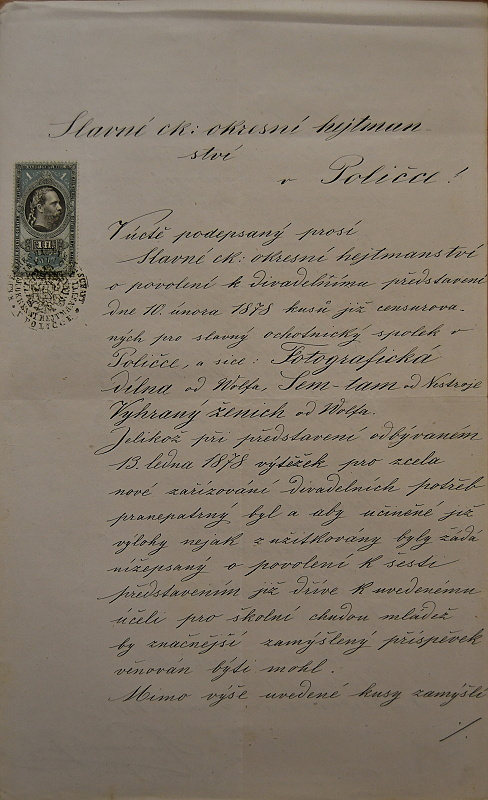 Slavné ck: okresní hejtman-
ství
v Poličce!
1 1
Vúctě podepsaný prosí
Slavné ck: okresní hejtmanství
o povolení k divadelnímu představení
dne 10. února 1878 kusů již censurova-
ných pro slavný ochotnický spolek v
Poličce, a sice: Fotografická
dílna od Wolfa, Sem-tam od Nestroje
Vyhraný ženich od Wolfa.
Jelikož při představení odbývaném
13. ledna 1878 výtěžek pro zcela
nové zařizování divadelních potřeb
pranepatrný byl a aby učiněné již
výlohy nejak zužitkovány byly žádá
nížepsaný o povolení k šesti
představením již dříve k uvedenému
účeli pro školní chudou mládež
by značnější zamýšlený příspěvek
věnován býti mohl.
Mimo výše uvedené kusy zamýšlí
./.